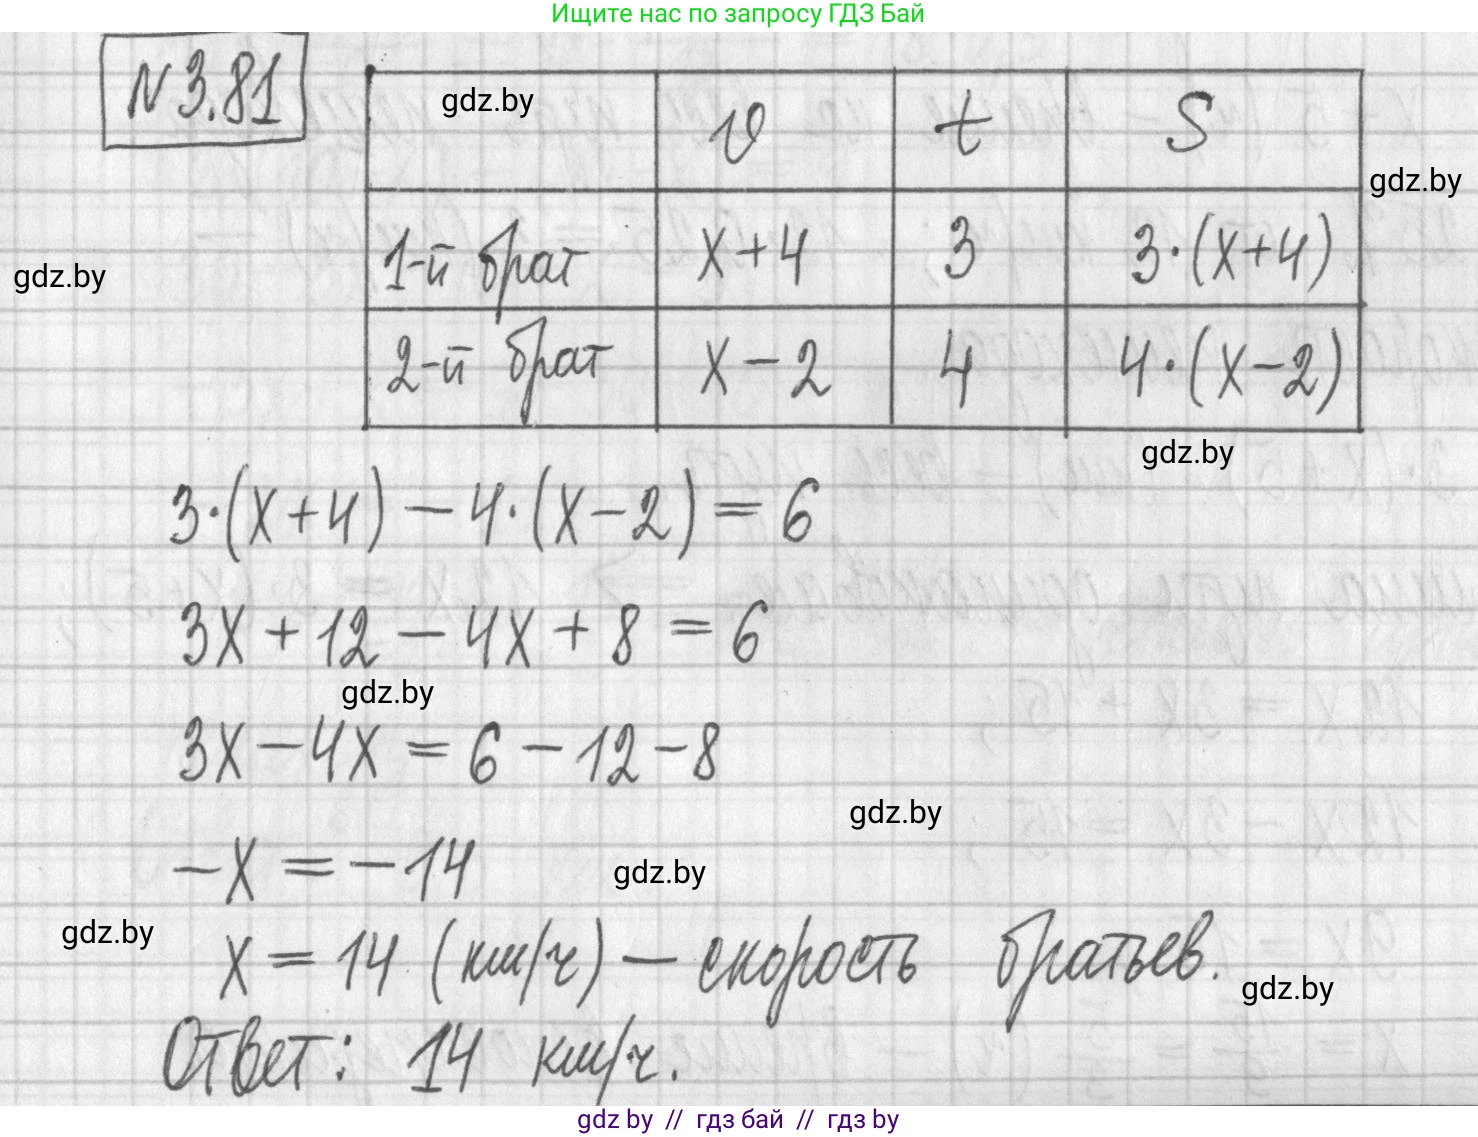 Ищите нас по запросу ГДЗ Бай
N 3.81
gdz.by
v t S
gdz.by
1-й брат x+4 3 3·(x+4)
gdz.by
2-й брат x-2 4 4·(x-2)
gdz.by
3·(x+4) - 4·(x-2) = 6
3x + 12 - 4x + 8 = 6
gdz.by
3x - 4x = 6 - 12 - 8
gdz.by
-x = -14
gdz.by
gdz.by
x = 14 (км/ч) - скорость братьев.
gdz.by
Ответ: 14 км/ч.
gdz by // гдз бай // гдз by